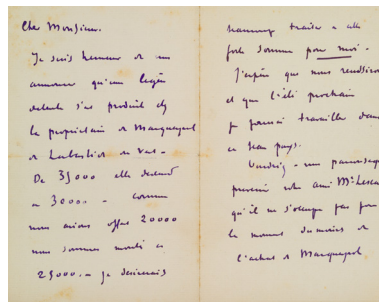 Cher Monsieur.
Je suis heureux de vous
annoncer qu'une légère
détente s'est produite chez
le propriétaire de Marquayrol
de Labastide du Vert -
De 35000 elle descend
a 30000 - comme
nous avions offert 20000
nous sommes monté a
25000 - je désirerais
traiter a cette
forte somme pour moi -
J'espère que nous réussirons
et que l'été prochain
je pourrai travailler dans
ce beau pays.
Voudriez-vous
prévenir votre ami Mr
qu'il ne s'occupe pas pour
le moment du moins de
l'achat de Marquayrol